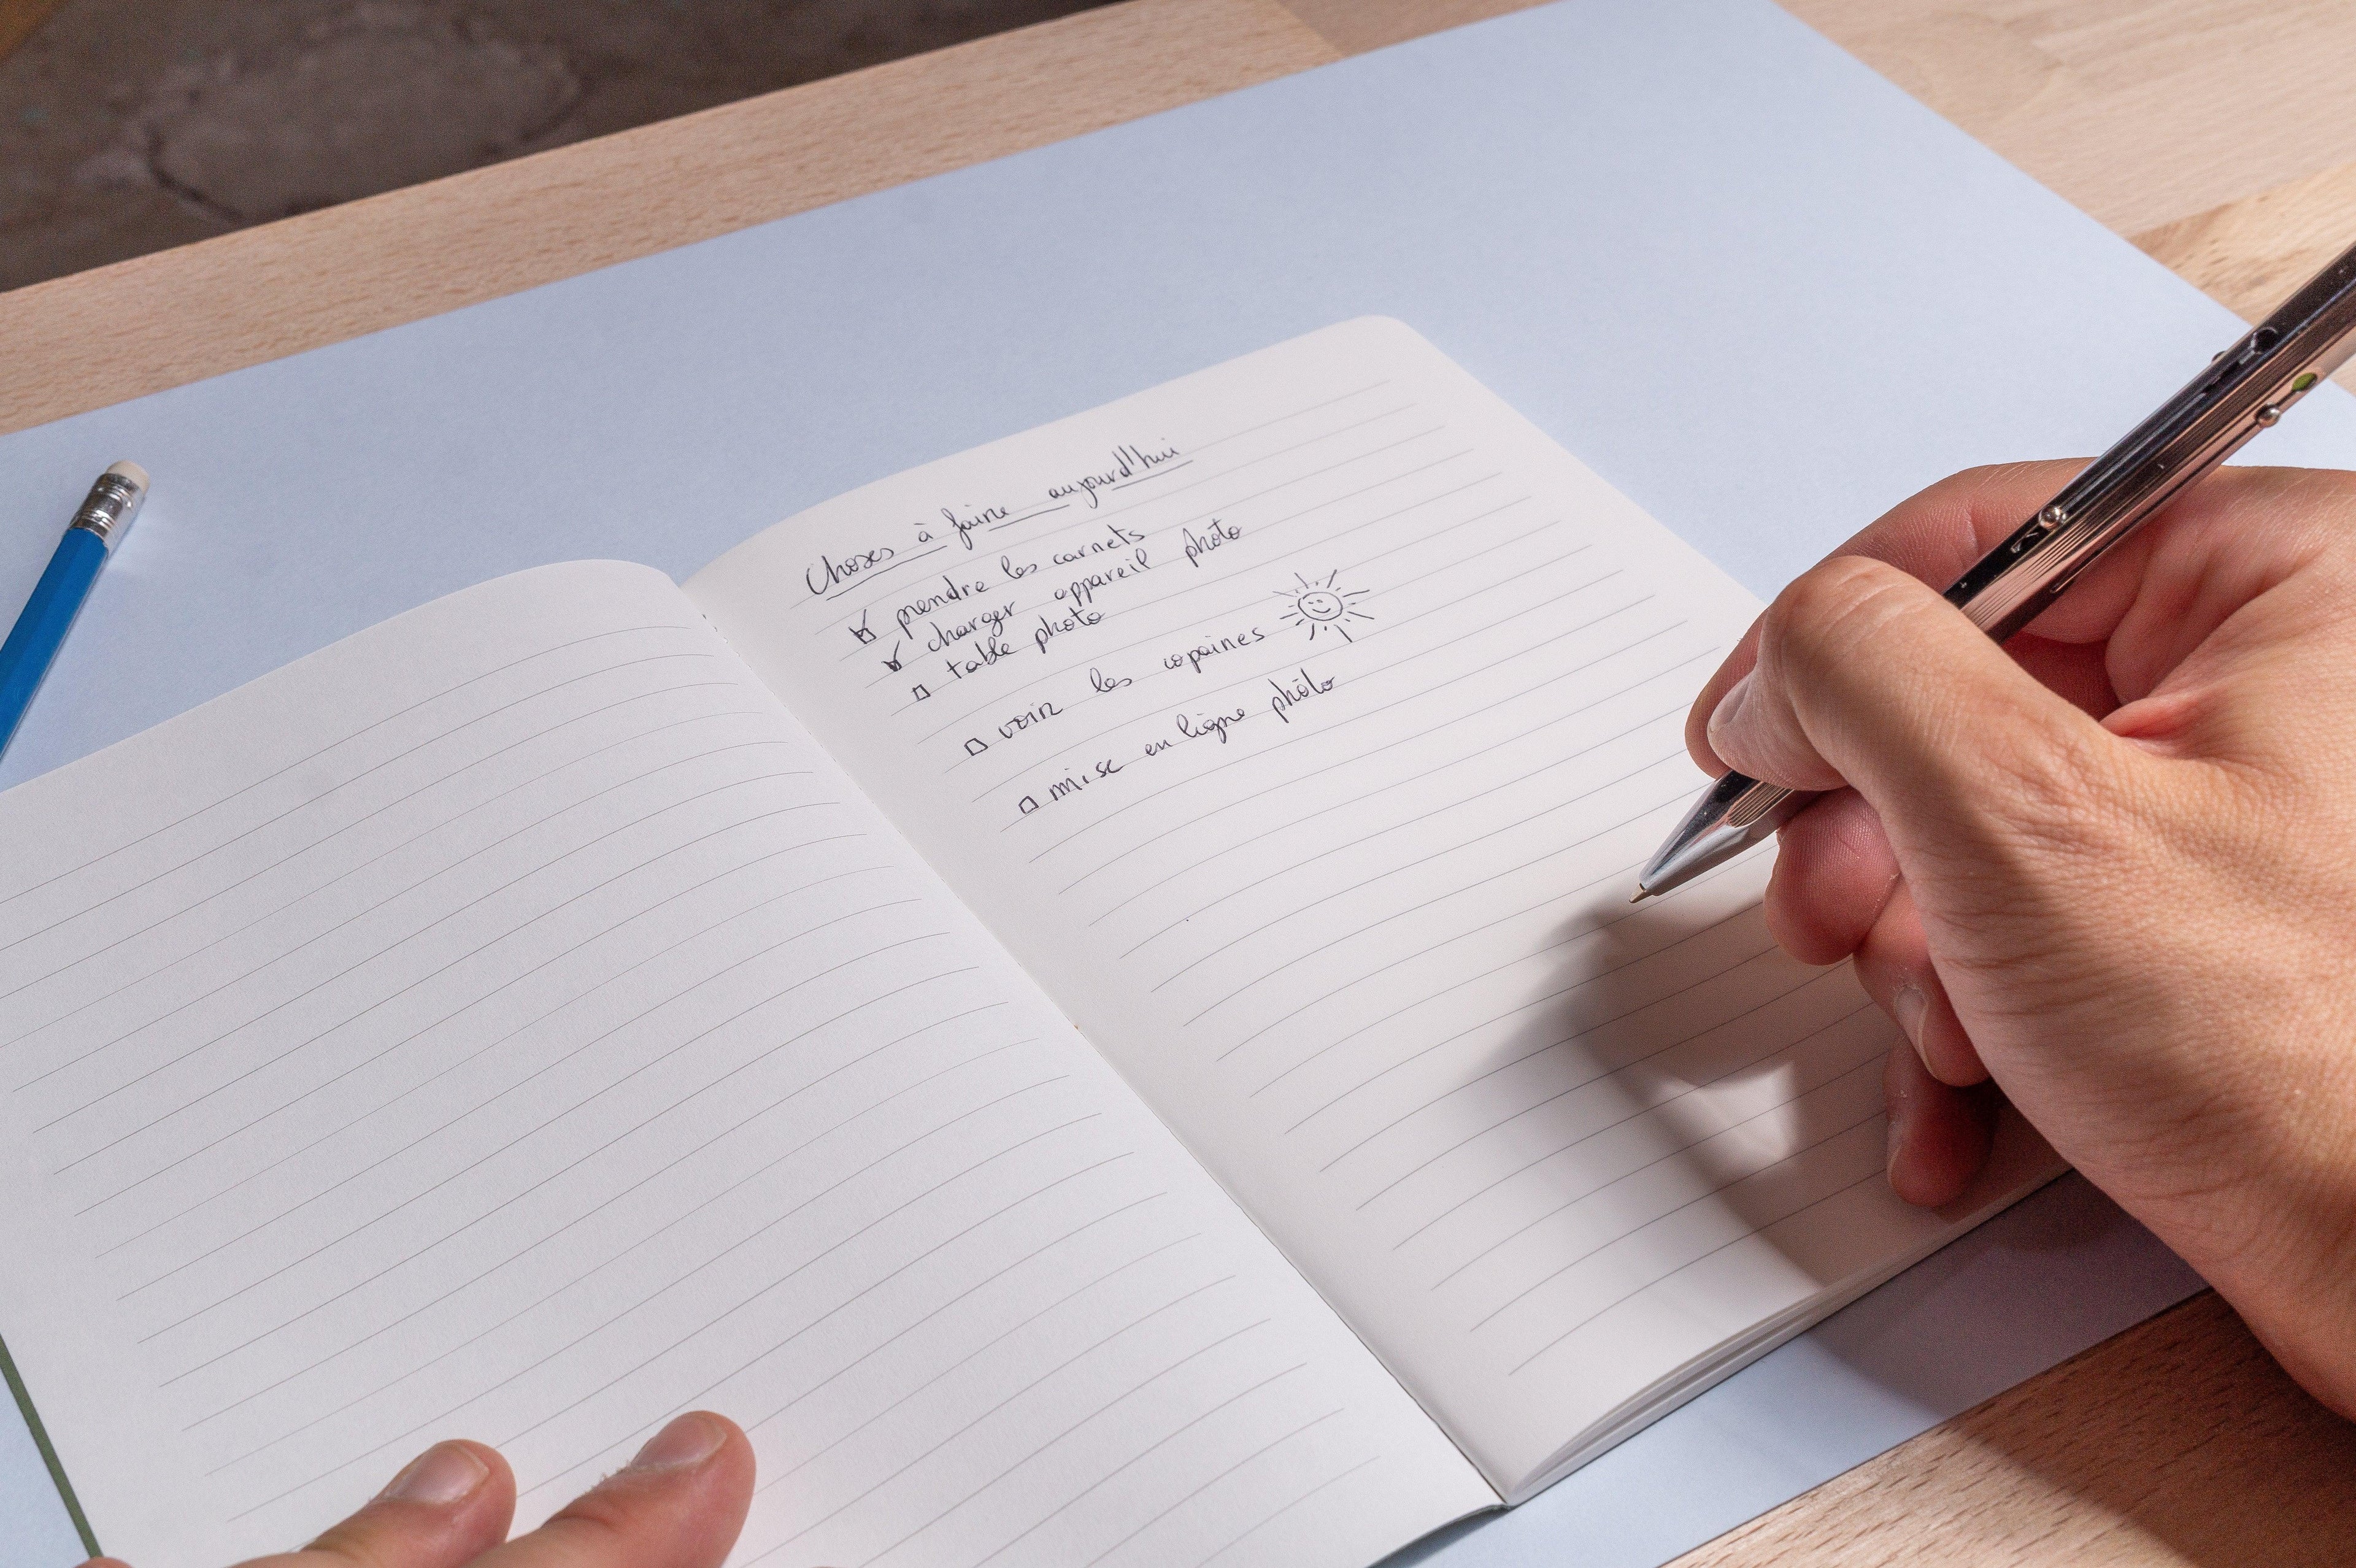 Choses à faire aujourd'hui
prendre les carnets
charger appareil photo
table photo
voir les copaines
mise en ligne photo